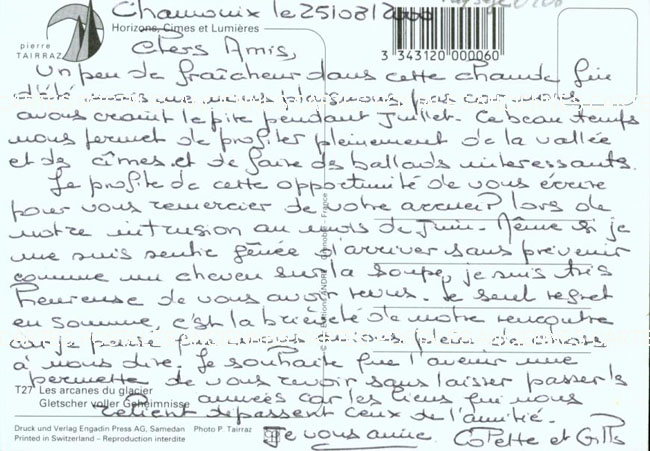 Chamonix le 25/08/2000
Horizons, Cimes et Lumières
pierre
TAIRRAZ
3 343120 000060
Chers Amis,
Un peu de fraîcheur dans cette chaude fin
d'été mais ne nous plaignons pas car nous
avons craint le pire pendant Juillet. Ce beau temps
nous permet de profiter pleinement de la vallée
et des cîmes et de faire des ballads interessants.
Je profite de cette opportunité de vous écrire
pour vous remercier de votre accueil lors de
notre intrusion au mois de Juin. Même si je
me suis sentie gênée d'arriver sans prévenir
comme un cheveu sur la soupe, je suis très
heureuse de vous avoir revus. Le seul regret
en somme, c'est la brièveté de notre rencontre
car je pense que nous avions plein de choses
à nous dire. Je souhaite que l'avenir me
permette de vous revoir sans laisser passer
années car les liens qui nous
relient dépassent ceux de l'amitié.
Je vous aime. Colette et Gilles
T27 Les arcanes du glacier
Gletscher voller Geheimnisse
Druck und Verlag Engadin Press AG, Samedan Photo P. Tairraz
Printed in Switzerland – Reproduction interdite